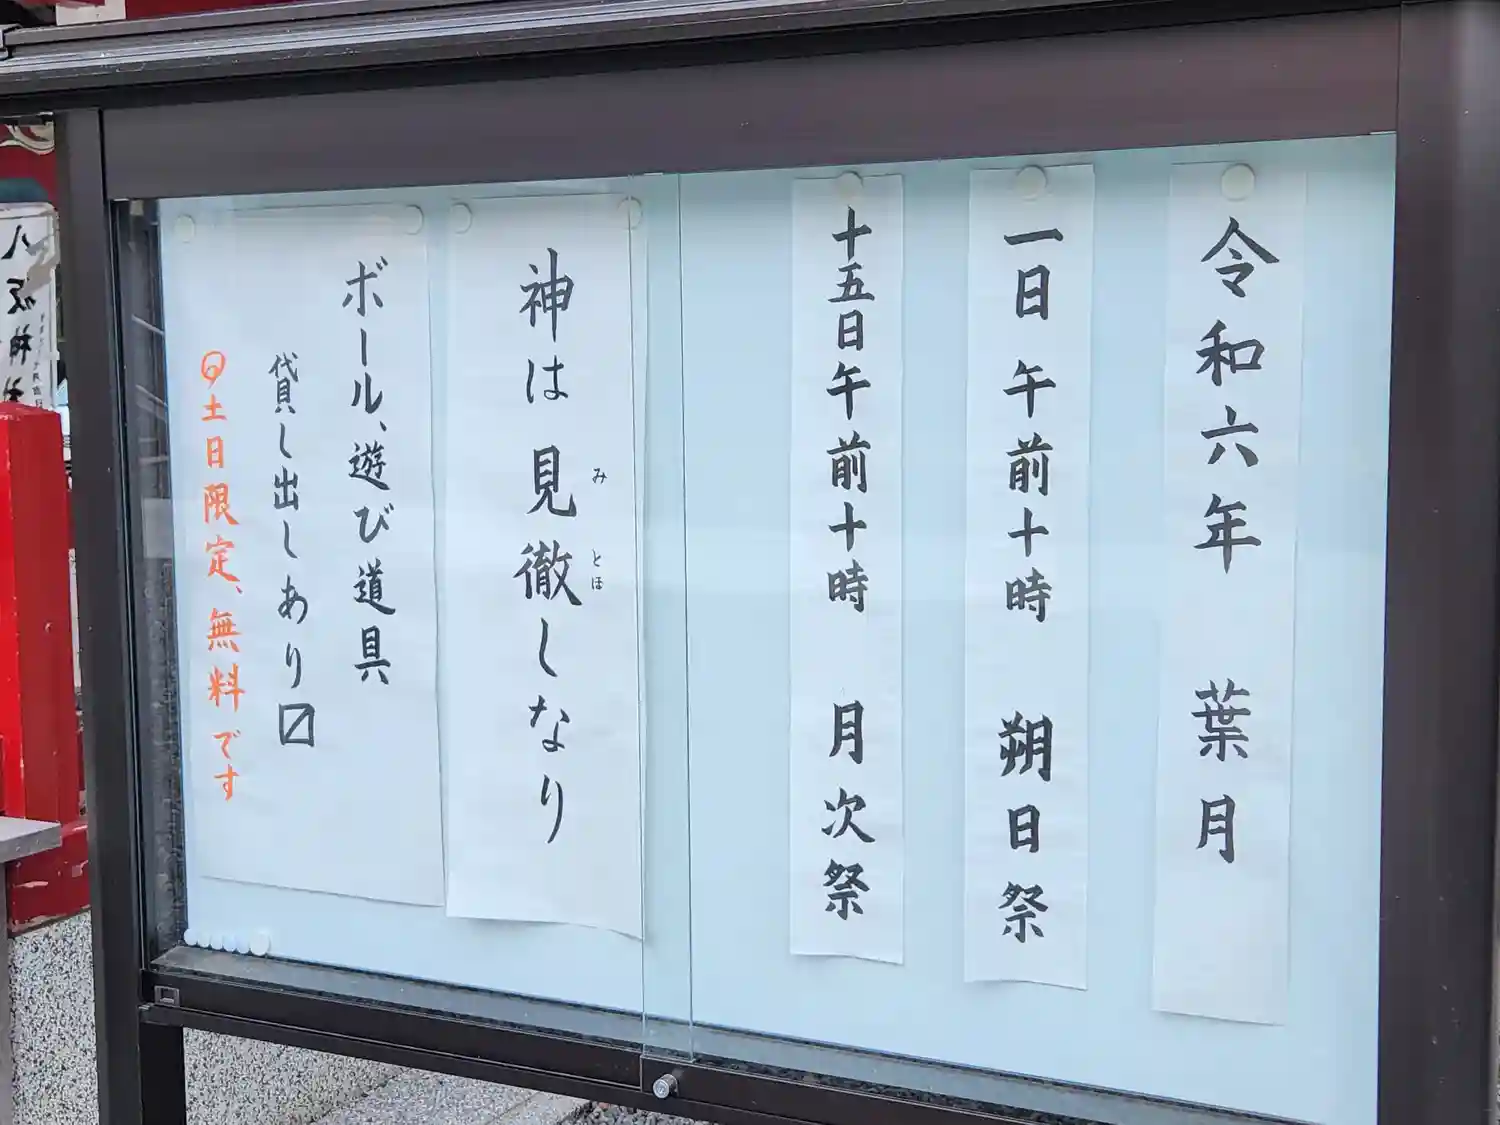 令和六年 葉月
一日 午前十時 朔日祭
十五日午前十時 月次祭
神は見徹しなり
みとほ
ボール、遊び道具
貸し出しあり〼
土日限定、無料です